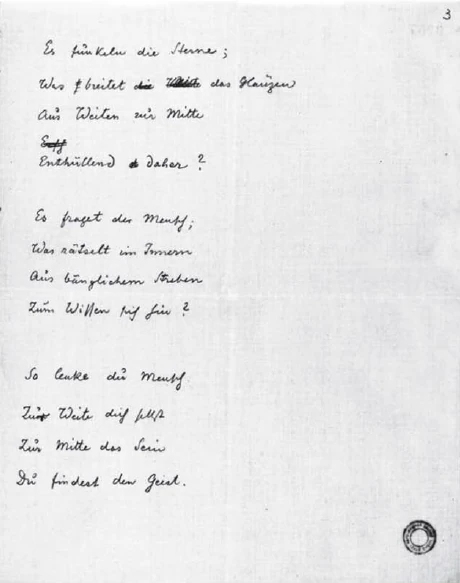 3
Es funkeln die Sterne;
Was breitet die das Glänzen
Aus Weiten zur Mitte
Enthüllend daher?
Es fraget der Mensch;
Was rätselt im Innern
Aus bänglichem Streben
Zum Wissen sich hin?
So lenke du Mensch
Zur Weite dich selbst
Zur Mitte das Sein
Du findest den Geist.